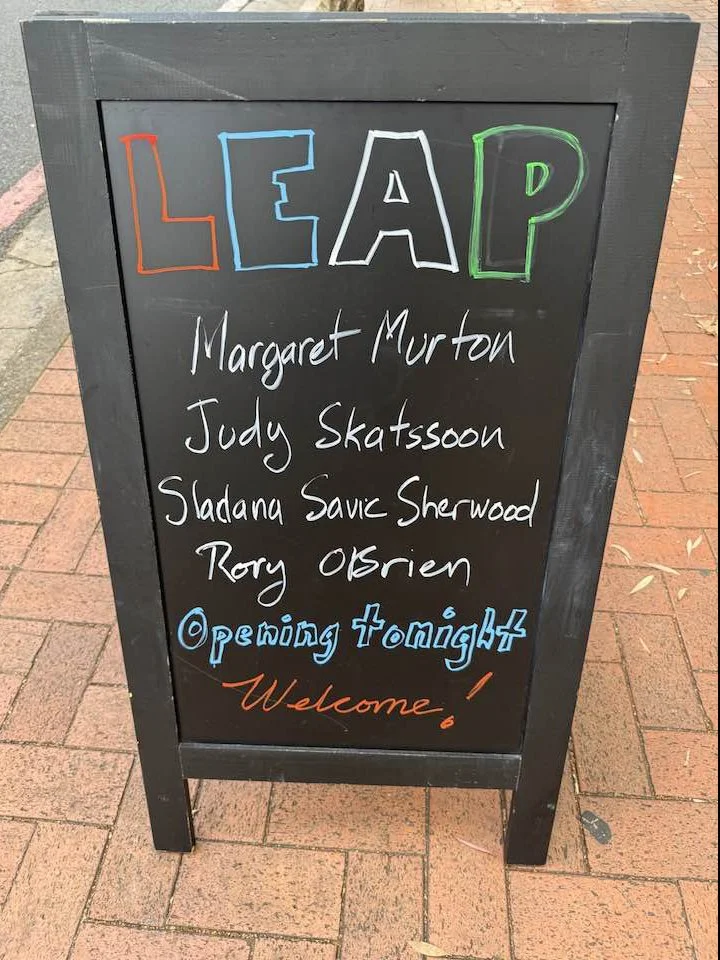 LEAP
Margaret Murton
Judy Skatssoon
Sladana Savic Sherwood
Rory OBrien
Opening tonight
Welcome!